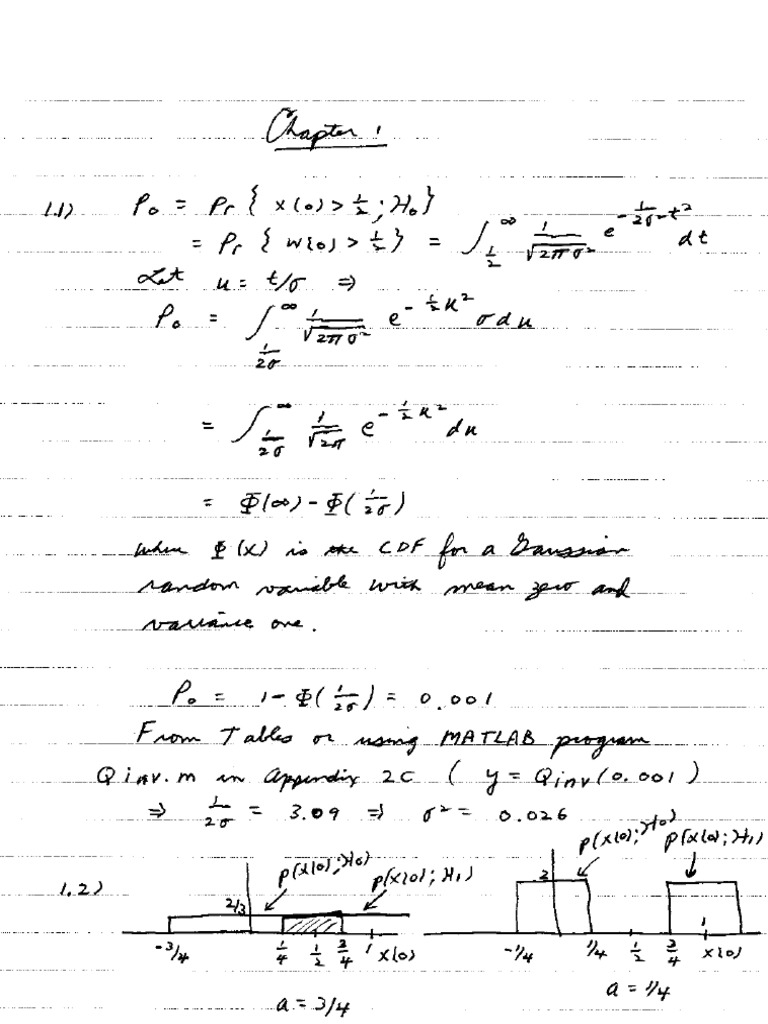 Chapter 1
1.1) P₀ = Pr{ x(0) > 1/2 ; H₀}
= Pr{ w(0) > 1/2 } = ∫_{1/2}^{∞} 1/√(2πσ²) e^{-1/(2σ²) t²} dt
Let u = t/σ ⇒
P₀ = ∫_{1/2σ}^{∞} 1/√(2πσ²) e^{-1/2 u²} σ du
= ∫_{1/2σ}^{∞} 1/√(2π) e^{-1/2 u²} du
= Φ(∞) - Φ(1/2σ)
where Φ(x) is the CDF for a Gaussian
random variable with mean zero and
variance one.
P₀ = 1 - Φ(1/2σ) = 0.001
From Tables or using MATLAB program
Qinv.m in Appendix 2C ( y = Qinv(0.001)
⇒ 1/2σ = 3.09 ⇒ σ² = 0.026
1.2)
p(x(0); H₀) p(x(0); H₁)
2/3
-3/4 1/4 1/2 3/4 1 x(0)
a = 3/4
p(x(0); H₀) p(x(0); H₁)
2
-1/4 1/4 1/2 3/4 1 x(0)
a = 1/4